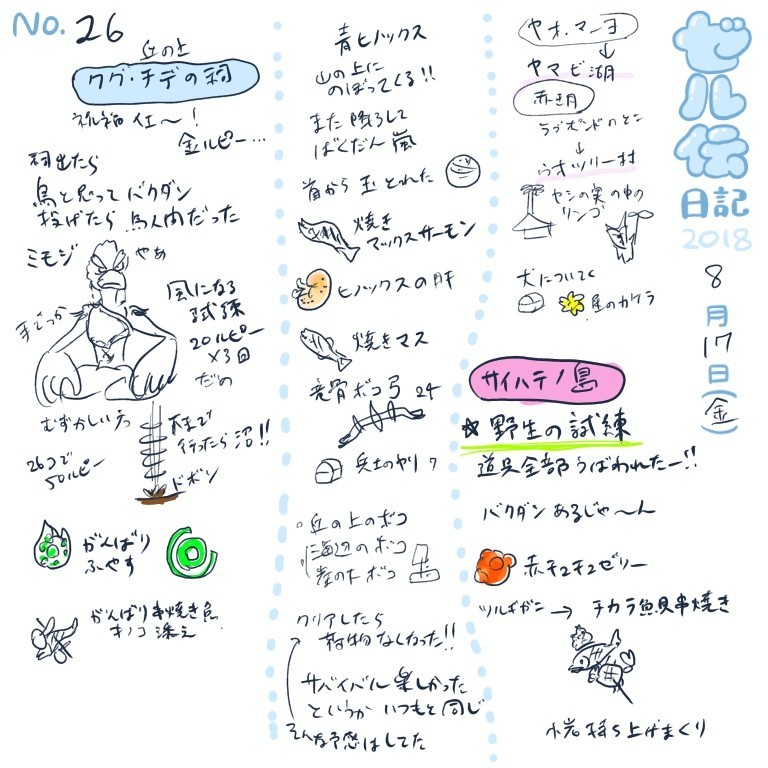 No. 26
丘の上
ワグ・チデの祠
祝福 仕〜!
金ルピー…
祠出たら
鳥と思って バクダン
投げたら 鳥人間だった
ミモジ
やあ
手でっか
風になる
試練
20ルピー
×3回
だめ
むずかしい方
下まで
行ったら 沼!!
26コで
50ルピー
ドボン
がんばり
ふやす
がんばり串焼き魚
キノコ添え
青ヒノックス
山の上に
のぼってくる!!
また 降ろして
ばくだん 嵐
首から 玉 とれた
焼き
マックスサーモン
ヒノックスの肝
焼きマス
竜骨ボコ弓 24
兵士のヤリ 7
丘の上のボコ
海辺のボコ
崖の下 ボコ
クリアしたら
荷物 なくなった!!
サバイバル 楽しかった
というか いつもと同じ
そんな予感はしてた
ヤオ・マーヨ
↓
ヤマビ湖
赤き月
ラブポンドのとこ
↓
ウオツリー村
ヤシの実の中の
リンゴ
犬についてく
星のカケラ
サイハテノ島
☆ 野生の試練
道具全部 うばわれたー!!
バクダン あるじゃ〜ん
赤チュチュゼリー
ツルギガニ → チカラ魚貝串焼き
小岩 持ち上げまくり
ゼル伝
日記
2018
8
月
17
日
(金)